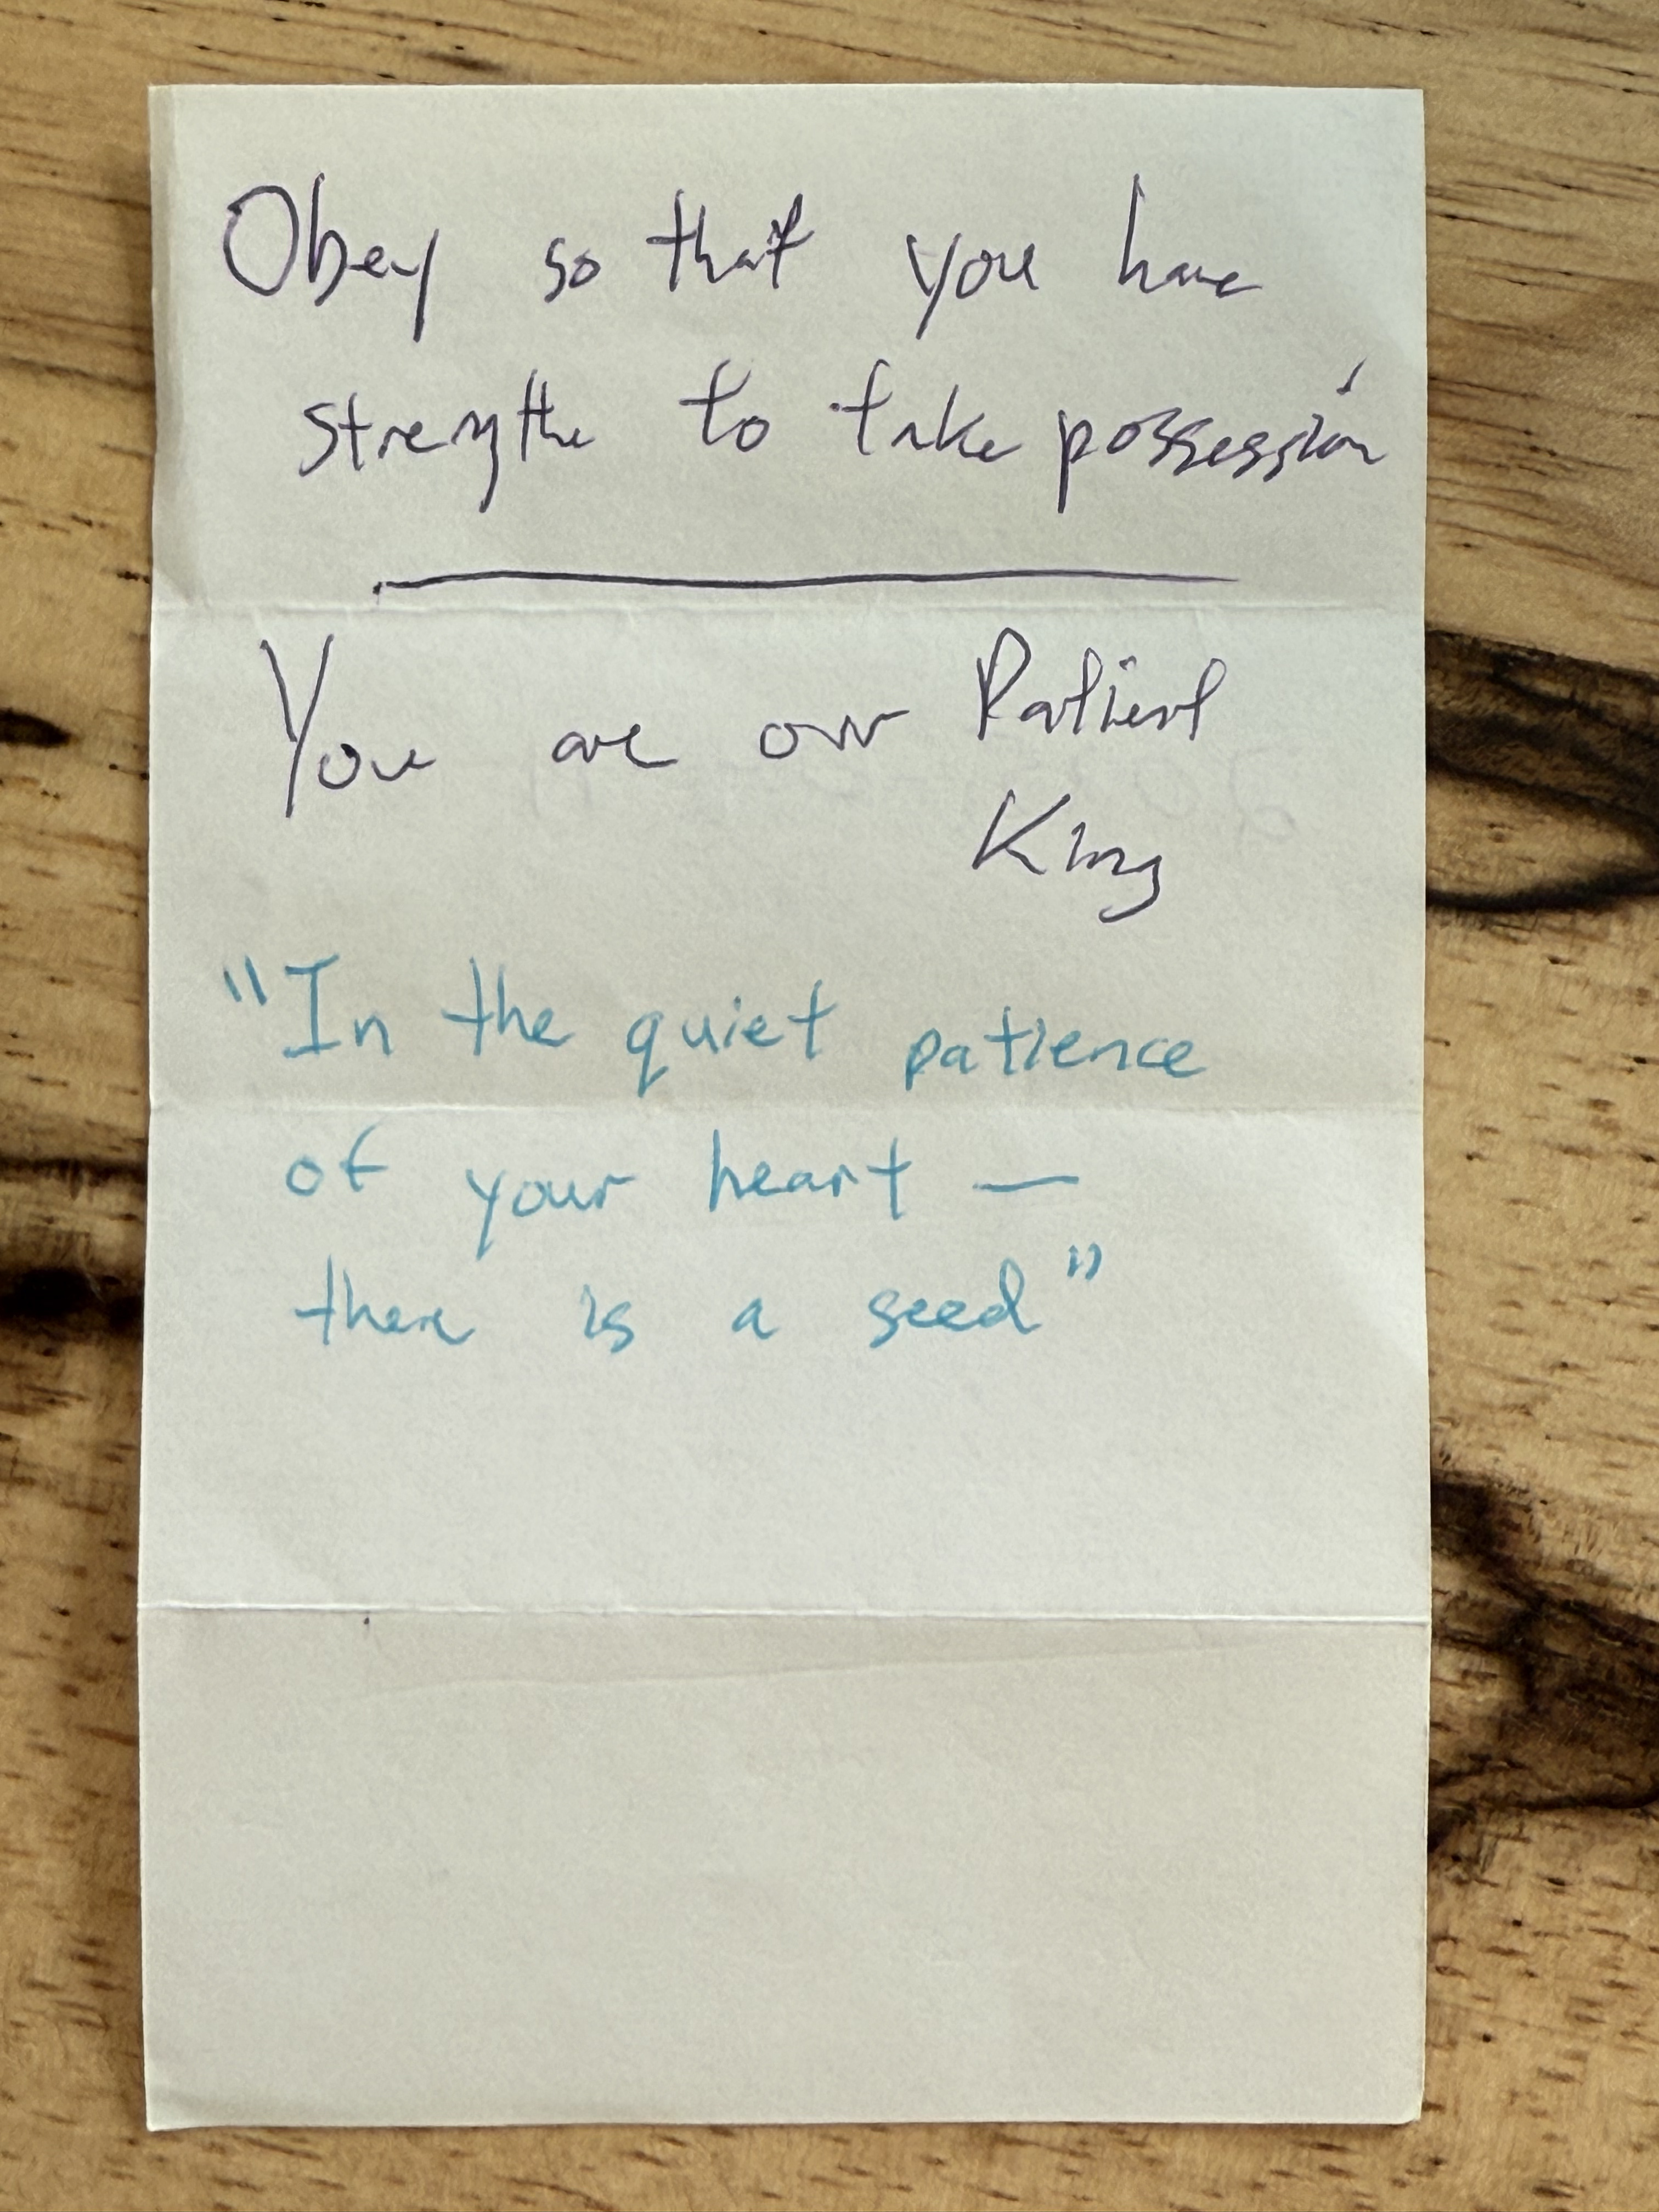 Obey so that you have
strength to take possession
You are our Patient
King
"In the quiet patience
of your heart —
there is a seed"